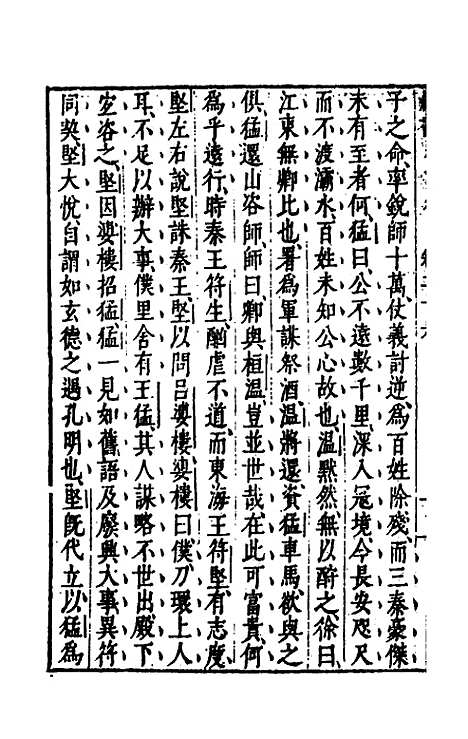 子之命、率銳師十萬、仗義討逆、爲百姓除殘、而三秦豪傑
未有至者何、猛曰、公不遠數千里、深入寇境、今長安咫尺
而不渡灞水、百姓未知公心故也、溫默然、無以酧之、徐曰、
江東無卿比也、署爲軍謀祭酒、溫將還、資猛車馬、欲與之
俱、猛還山咨師、師曰、卿與桓溫豈並世哉、在此可富貴、何
爲乎遠行、時秦王符生、酗虐不道、而東海王符堅、有志度、
堅左右說堅誅秦王、堅以問呂婆樓、婆樓曰、僕刀環上人
耳、不足以辦大事、僕里舍有王猛、其人謀略不世出、殿下
宐咨之、堅因婆樓招猛、猛一見如舊、語及廢興大事、異符
同契、堅大悅、自謂如玄德之遇孔明也、堅旣代立、以猛爲